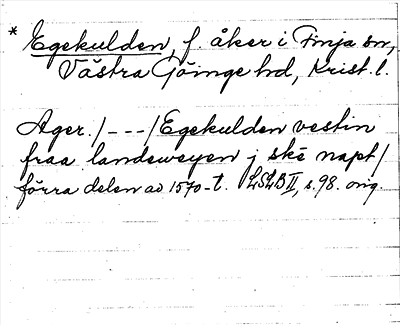 * Egekulden, f. åker i Finja sn,
Västra Göinge hd, Krist. l.
Ager. /---/ Egekulden vestin
fraa landeweyen j ske napt/
förra delen av 1570-t. LSLB II, s. 98. orig.